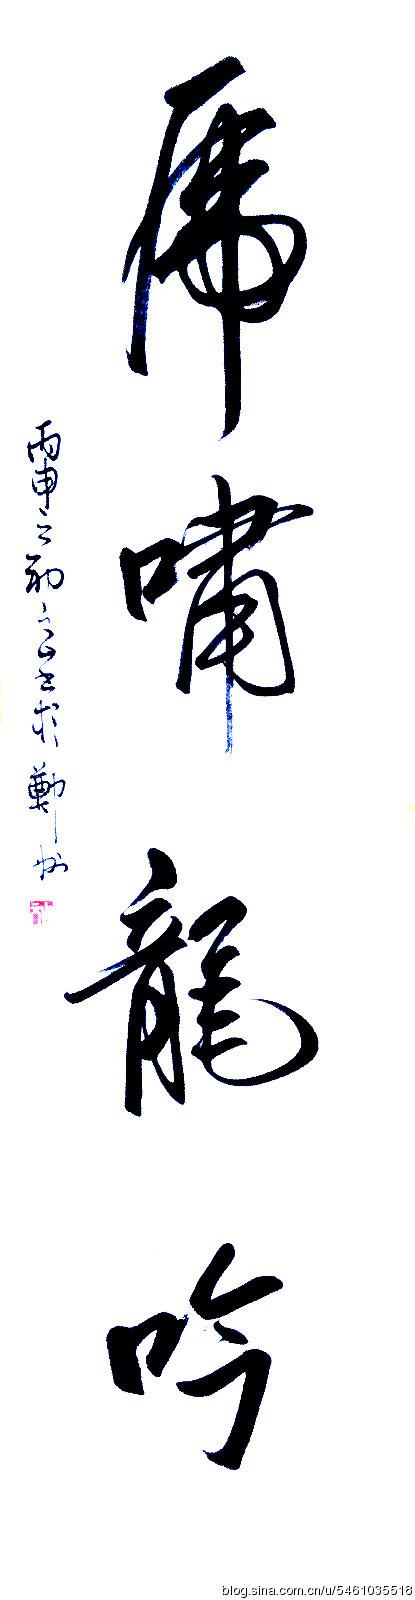 虎啸龍吟
丙申之初立山书於鄭州
blog.sina.com.cn/u/5461035518